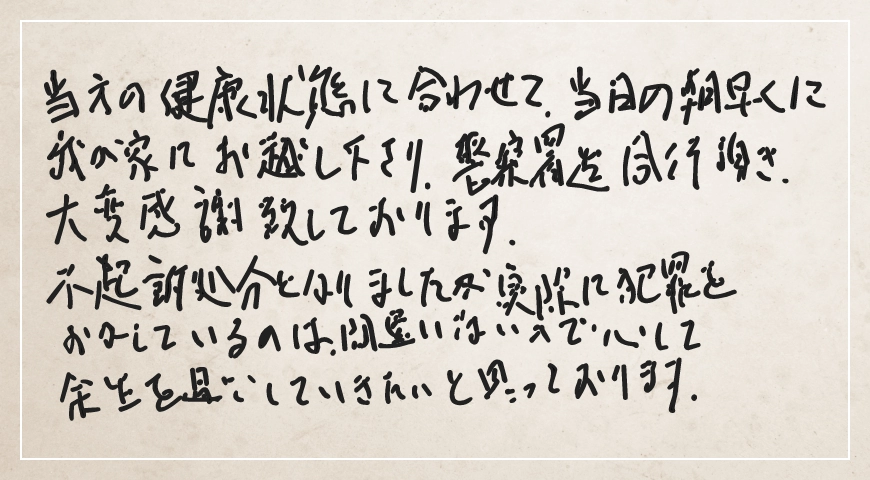 当方の健康状態に合わせて、当日の朝早くに
我が家にお越し下さり、警察署迄同行頂き、
大変感謝致しております。
不起訴処分となりましたが実際に犯罪を
おかしているのは、間違いないので心して
余生を過ごしていきたいと思っております。